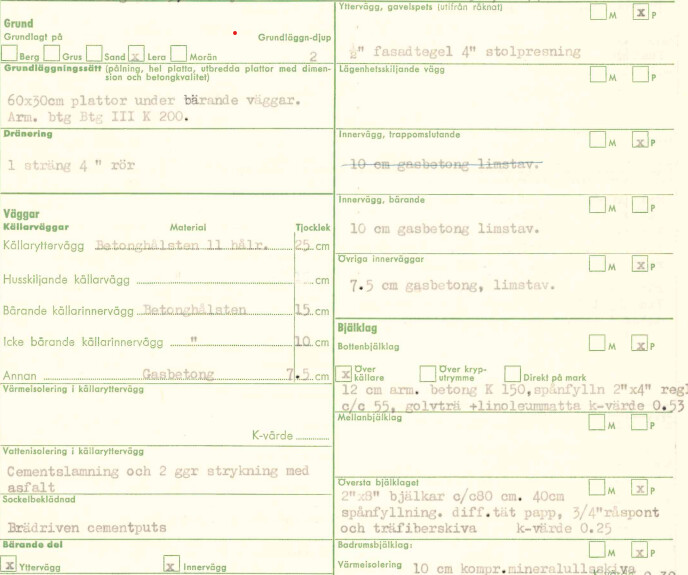 Grund
Grundlagt på
Grundläggn-djup
Berg Grus Sand x Lera Morän 2
Grundläggningssätt (pålning, hel platta, utbredda plattor med dimen-
sion och betongkvalitet)
60x30cm plattor under bärande väggar.
Arm. btg Btg III K 200.
Dränering
1 sträng 4 " rör
Väggar
Källarväggar Material Tjocklek
Källaryttervägg Betonghålsten 11 hålr. 25 cm
Husskiljande källarvägg cm
Bärande källarinnervägg Betonghålsten 15 cm
Icke bärande källarinnervägg " 10 cm
Annan Gasbetong 7.5 cm
Värmeisolering i källaryttervägg
K-värde
Vattenisolering i källaryttervägg
Cementslamning och 2 ggr strykning med
asfalt
Sockelbeklädnad
Brädriven cementputs
Bärande del
x Yttervägg x Innervägg
Yttervägg, gavelspets (utifrån räknat) M x P
½" fasadtegel 4" stolpresning
Lägenhetsskiljande vägg M P
Innervägg, trappomslutande M x P
10 cm gasbetong limstav.
Innervägg, bärande M P
10 cm gasbetong limstav.
Övriga innerväggar M x P
7.5 cm gasbetong, limstav.
Bjälklag
Bottenbjälklag M x P
x Över
källare
Över kryp-
utrymme
Direkt på mark
12 cm arm. betong K 150,spånfylln 2"x4" regl
c/c 55, golvträ +linoleummatta k-värde 0.53
Mellanbjälklag M P
Översta bjälklaget M x P
2"x8" bjälkar c/c80 cm. 40cm
spånfyllning. diff.tät papp, 3/4"råspont
och träfiberskiva k-värde 0.25
Badrumsbjälklag: M x P
Värmeisolering 10 cm kompr.mineralullsskiva